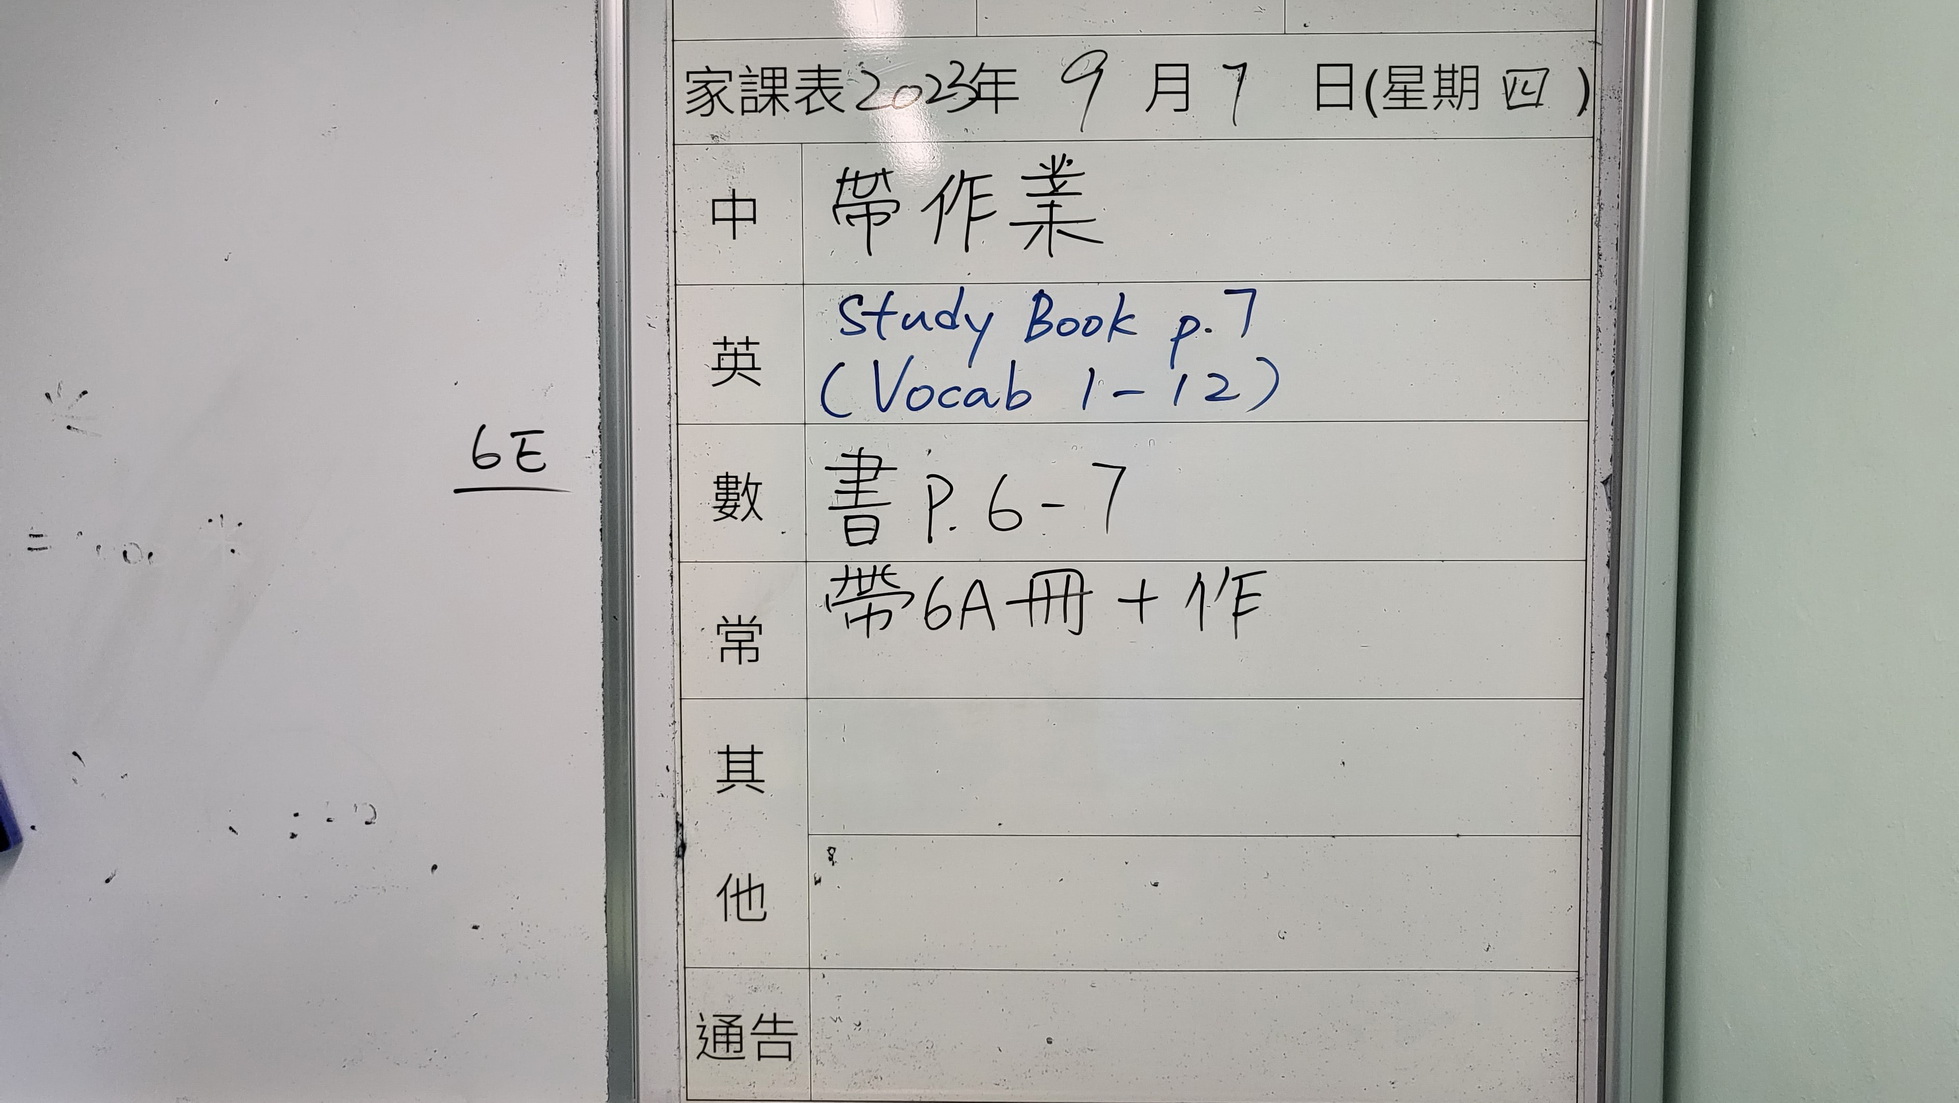 家課表2023年 9 月 7 日(星期 四 )
中 帶作業
英 Study Book p.7
(Vocab 1-12)
6E
數 書 P. 6-7
常 帶6A冊 + 作
其
他
通告